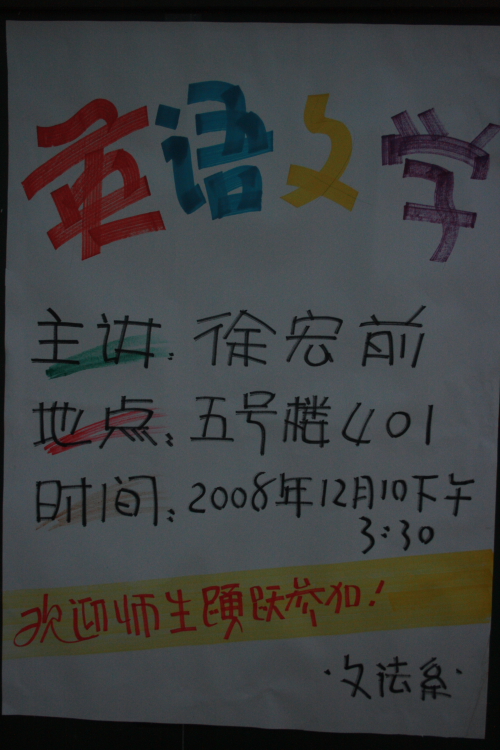 英语文学
主讲:徐宏前
地点:五号楼401
时间:2008年12月10下午
3:30
欢迎师生踊跃参加!
·文法系·